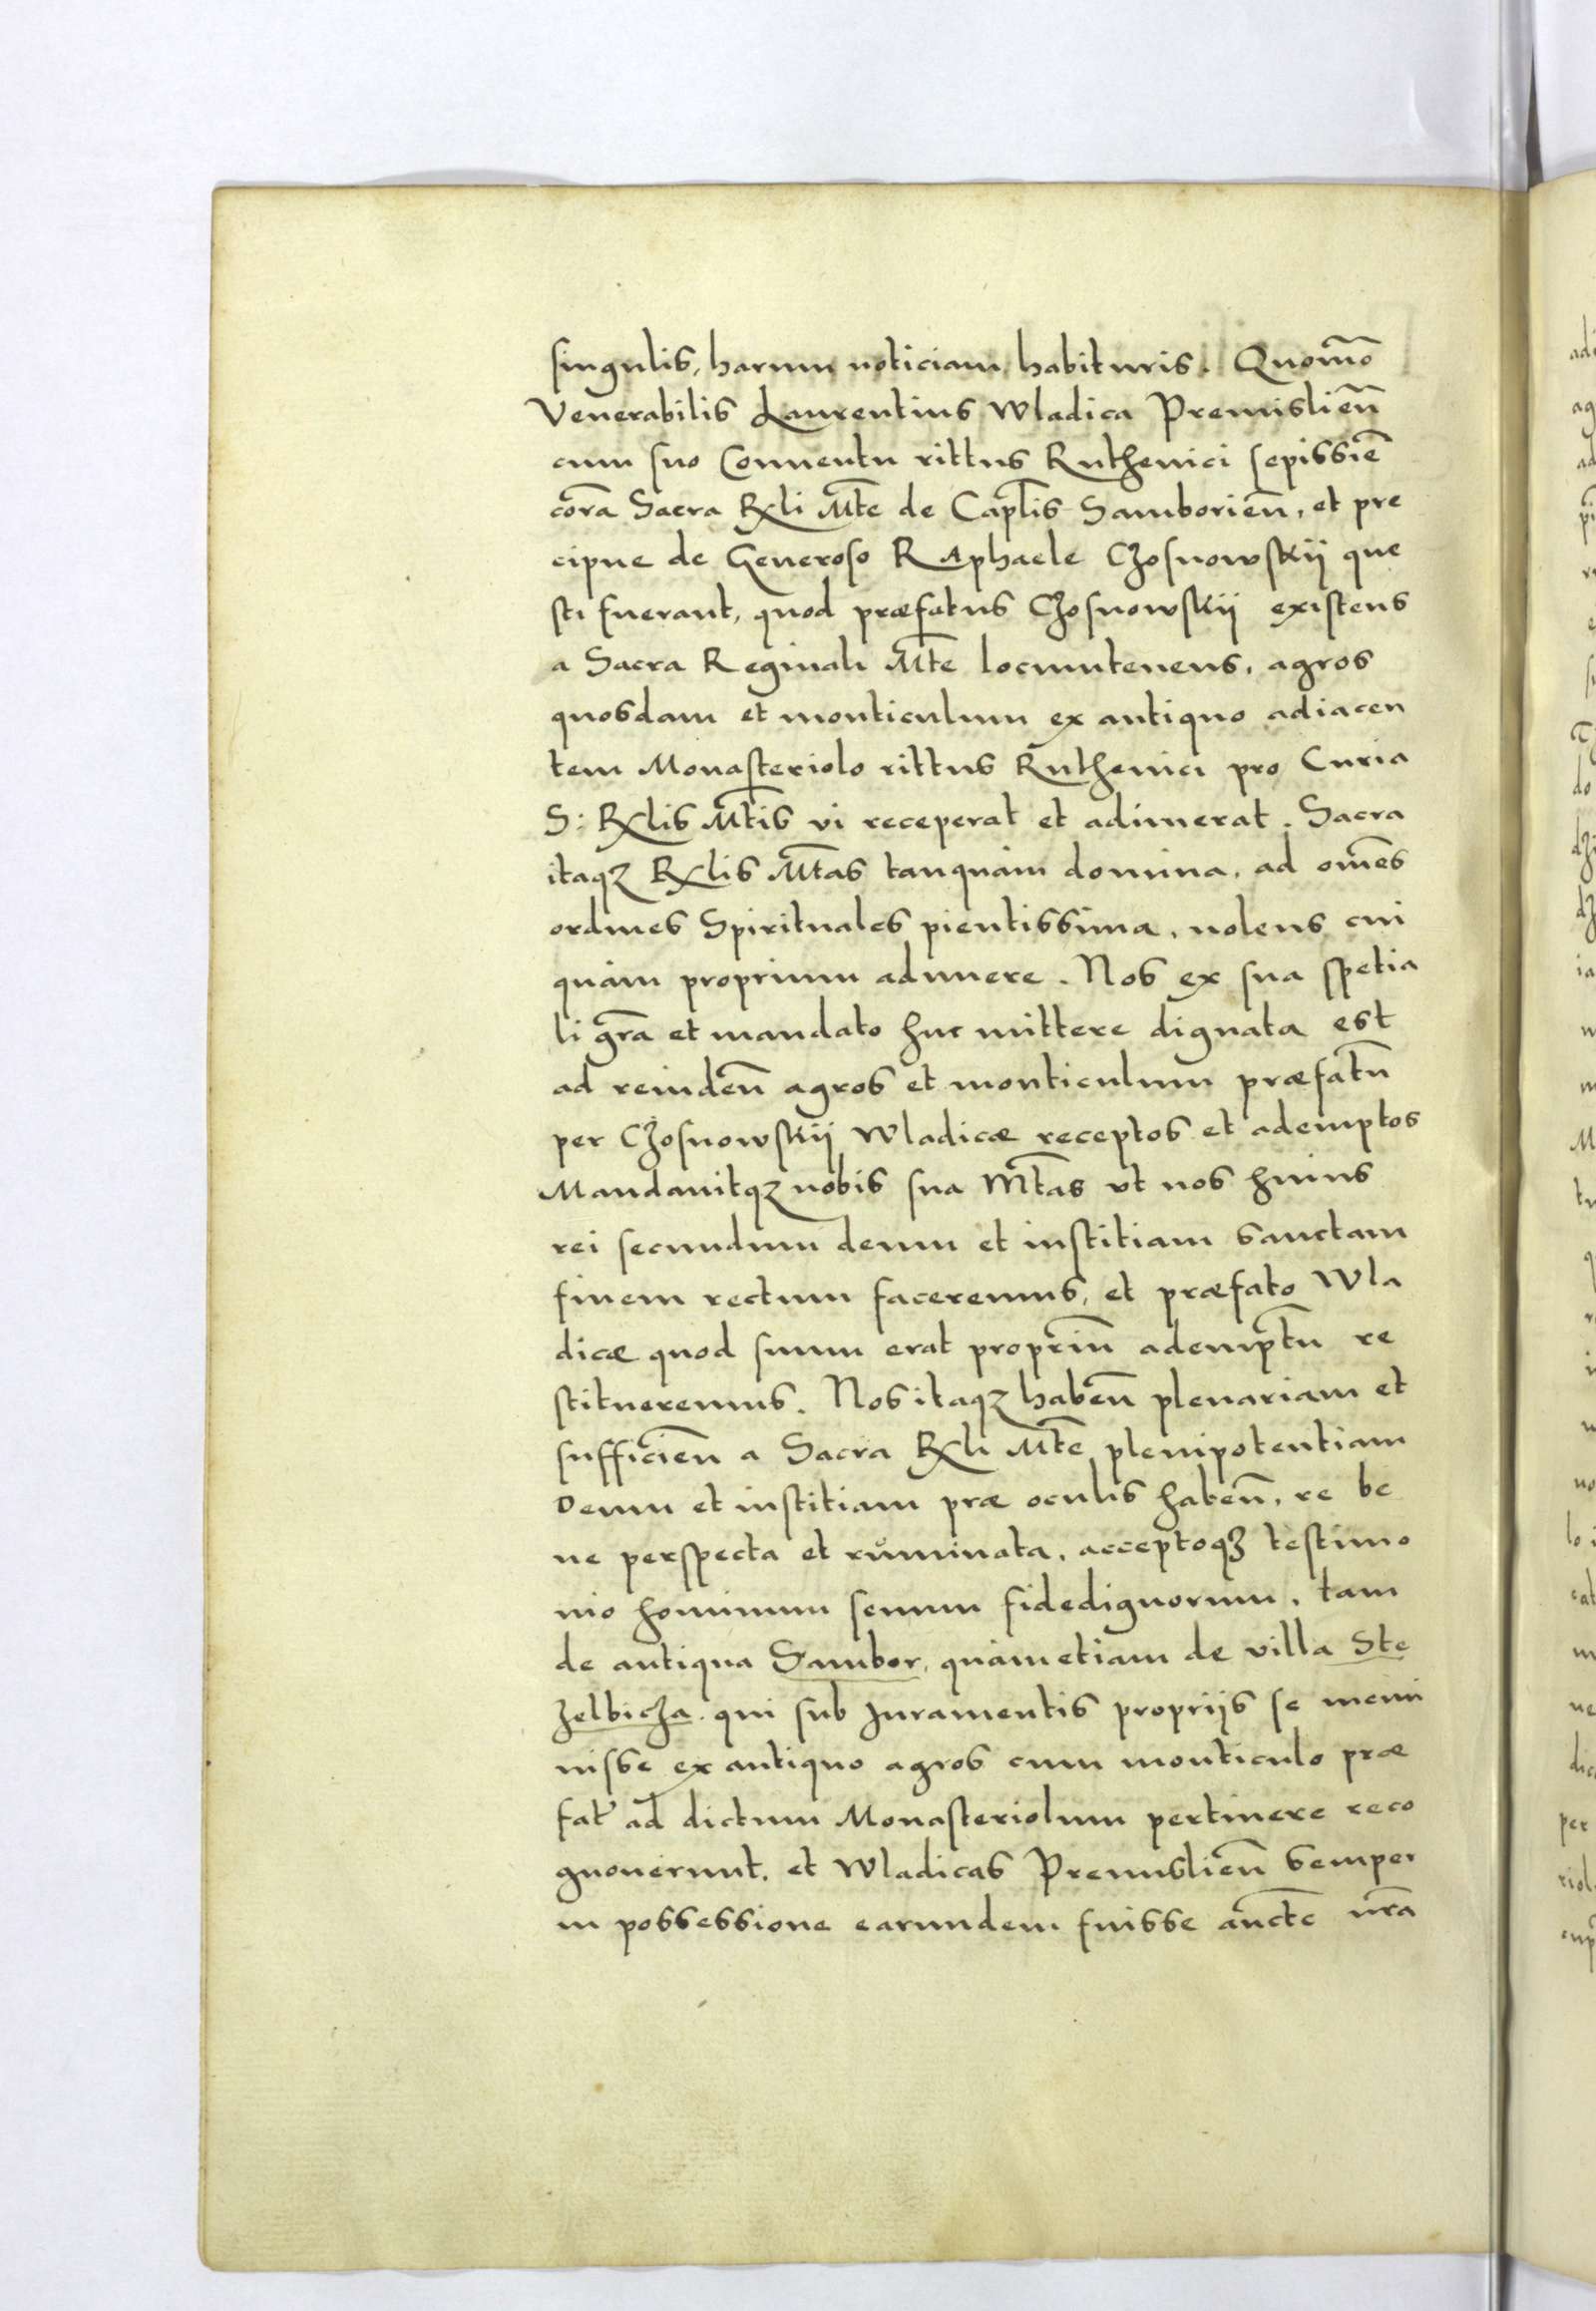 singulis, harum noticiam habituris. Quom̄o
Venerabilis Laurentius Wladica Premislien̄
cum suo Conuentu rittus Ruthenici sepissīe
corā Sacra Rxli Mt̄e de Capl̄tis Samborien̄, et pre
cipue de Generoso RAphaele Chosnowskij que
sti fuerant, quod præfatus Chosnowskij existens
a Sacra Reginali Mt̄e locumtenens, agros
quosdam et monticulum ex antiquo adiacen
tem Monasteriolo rittus Ruthenici pro Curia
S: Rxlis Mt̄is vi receperat et adimerat. Sacra
itaqꝫ Rxlis Mt̄as tanquàm domina, ad om̄es
ordines Spirituales pientissima, nolens cui
quàm proprium adimere. Nos ex sua spetia
li gr̄a et mandato huc mittere dignata est
ad reuiden̄ agros et monticulum præfatū
per Chosnowskij Wladicæ receptos et ademptos
Mandauitqꝫ nobis sua Mt̄as vt nos huius
rei secundum deum et iustitiam sanctam
finem rectum faceremus, et præfato Wla
dicæ quod suum erat propriū ademptū re
stitueremus. Nos itaqꝫ haben̄ plenariam et
sufficien̄ a Sacra Rxli Mt̄e plenipotentiam
Deum et iustitiam præ oculis haben̄, re be
ne perspecta et růminata, acceptoqꝫ testimo
nio hominum senum fidedignorum, tam
de antiqua Sambor, quàm etiam de villa Ste
zelbicza. qui sub Iuramentis proprijs se memi
nisse ex antiquo agros cum monticulo præ
fat' ad dictum Monasteriolum pertinere reco
gnouerunt, et Wladicas Premislien̄ semper
in possessione earundem fuisse auct̄e nr̄a